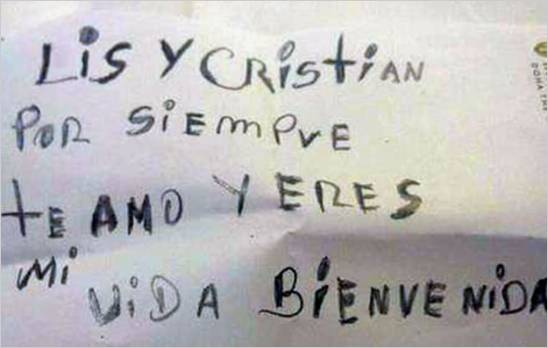 Lis Y CRistiAN
POR SiEmPVE
tE AMO Y ERES
Mi
ViDA BiENVENiDA